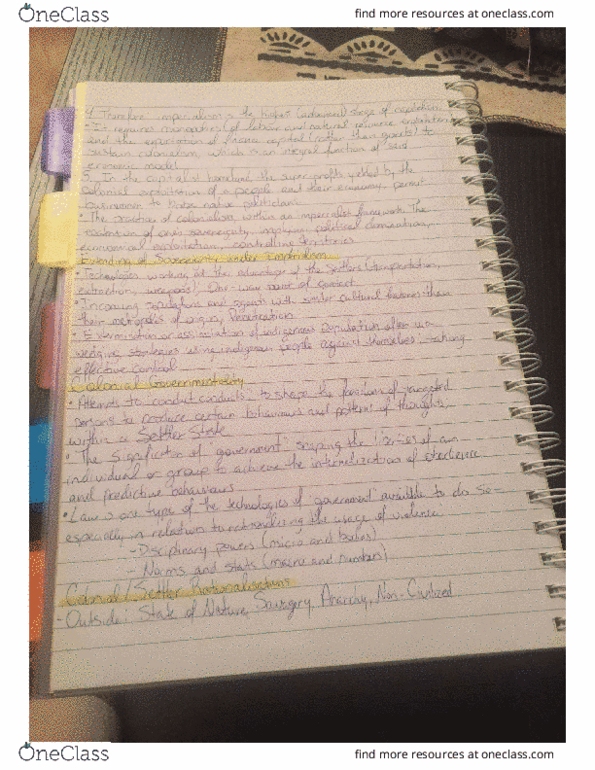 OneClass
find more resources at oneclass.com
4. Therefore imperialism is the highest (advanced) stage of capitalism
• It requires monopolies (of labour and natural resource exploitation)
and the exportation of finance capital (rather than goods) to
sustain colonialism, which is an integral function of said
economic model
5. In the capitalist homeland, the super-profits yielded by the
colonial exploitation of a people and their economy, permit
businessmen to bribe native politicians
• The practice of colonialism, within an imperialist framework: The
extension of one's sovereignty, involving political domination,
economical exploitation, controlling territories
Extending of Sovereignty under Imperialism
• Technologies working at the advantage of the Settlers (transportation,
extraction, weapons). One-way name of contact
• Incoming population and agents with similar cultural features than
their metropoles of origin. Penetration
• Extermination or assimilation of indigenous population after
wedging strategies using indigenous people against themselves, taking
effective control
Colonial Governmentality
• Attempts to "conduct conducts", to shape the functions of targeted
persons to produce certain behaviours and patterns of thoughts,
within a Settler State
• The signification of "government": shaping the liberties of an
individual or group to achieve the internalization of obedience
and predictive behaviours
• Law is one type of the technologies of 'government' available to do so -
especially in relation to the usage of violence:
- Disciplinary powers (micro and bodies)
- Norms and stats (macro and numbers)
Colonial/Settler Rationalisations
- Outside: State of Nature, Savagery, Anarchy, Non-Civilized
OneClass
find more resources at oneclass.com